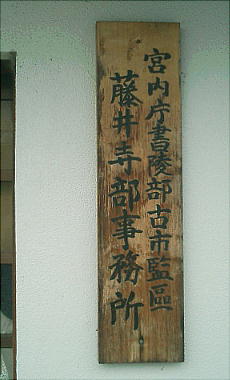 宮内庁書陵部古市監區
藤井寺部事務所